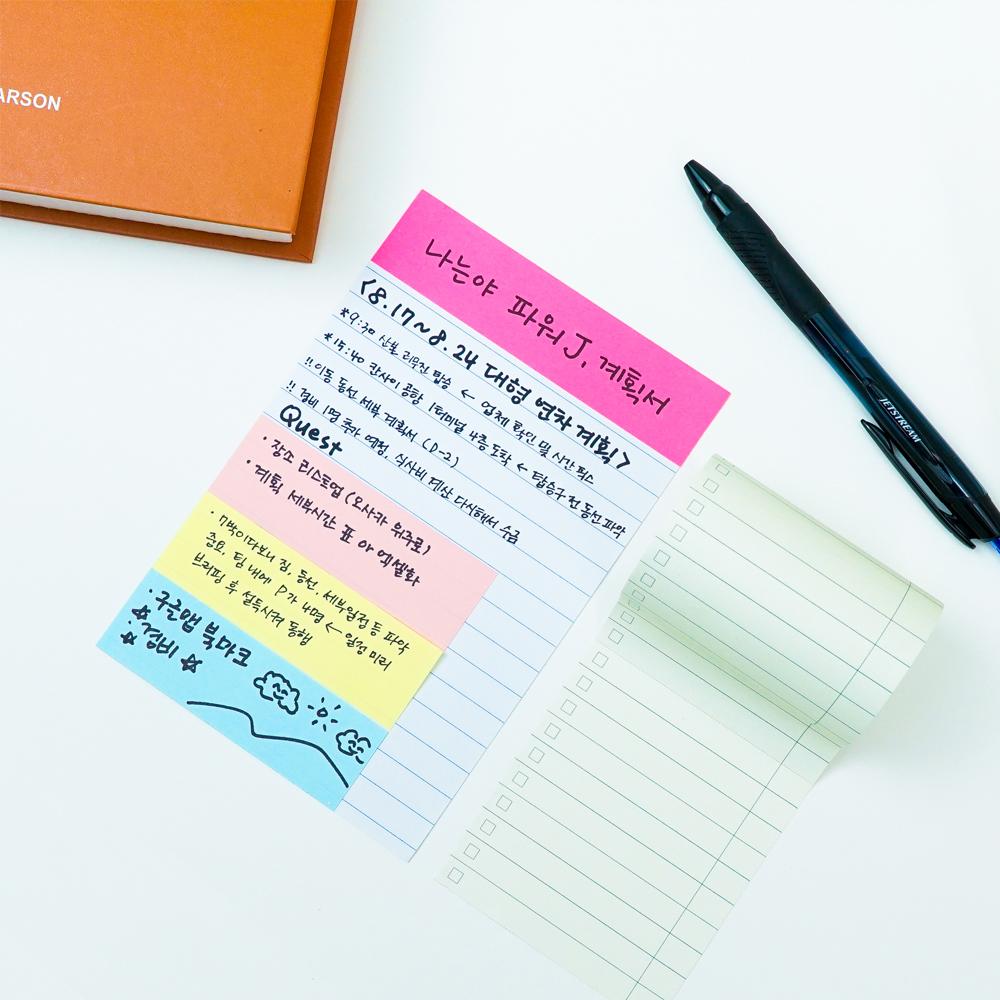 ARSON
나는야 파워 J, 계획서
<8.17~8.24 대형 연차 계획>
*9:30 산본 리무진 탑승 ← 업체 확인 및 시간 픽스
*15:40 칸사이 공항 1터미널 4층 도착 ← 탑승구 전 동선 파악
!! 이동 동선 세부 계획서 (D-2)
!! 경비 1명 추가 예정, 식사비 예산 다시해서 수금
Quest
· 장소 리스트업 (오사카 위주로)
· 계획 세부시간 표 or 엑셀화
· 7박이다보니 짐, 동선, 세부일정 등 파악
중요, 팀 내에 P가 4명 ← 일정 미리
브리핑 후 설득시켜 동행
· 구글맵 북마크
☆경비☆
JETSTREAM